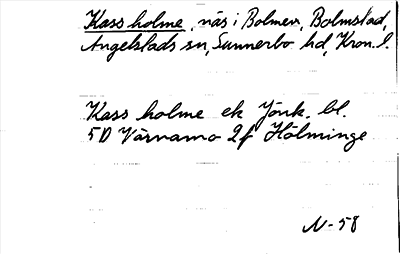 Kass holme, näs i Bolmen, Bolmstad,
Angelstads sn, Sunnerbo hd, Kron. l.
Kass holme ek Jönk. bl.
5D Värnamo 2f Hölminge
N-58